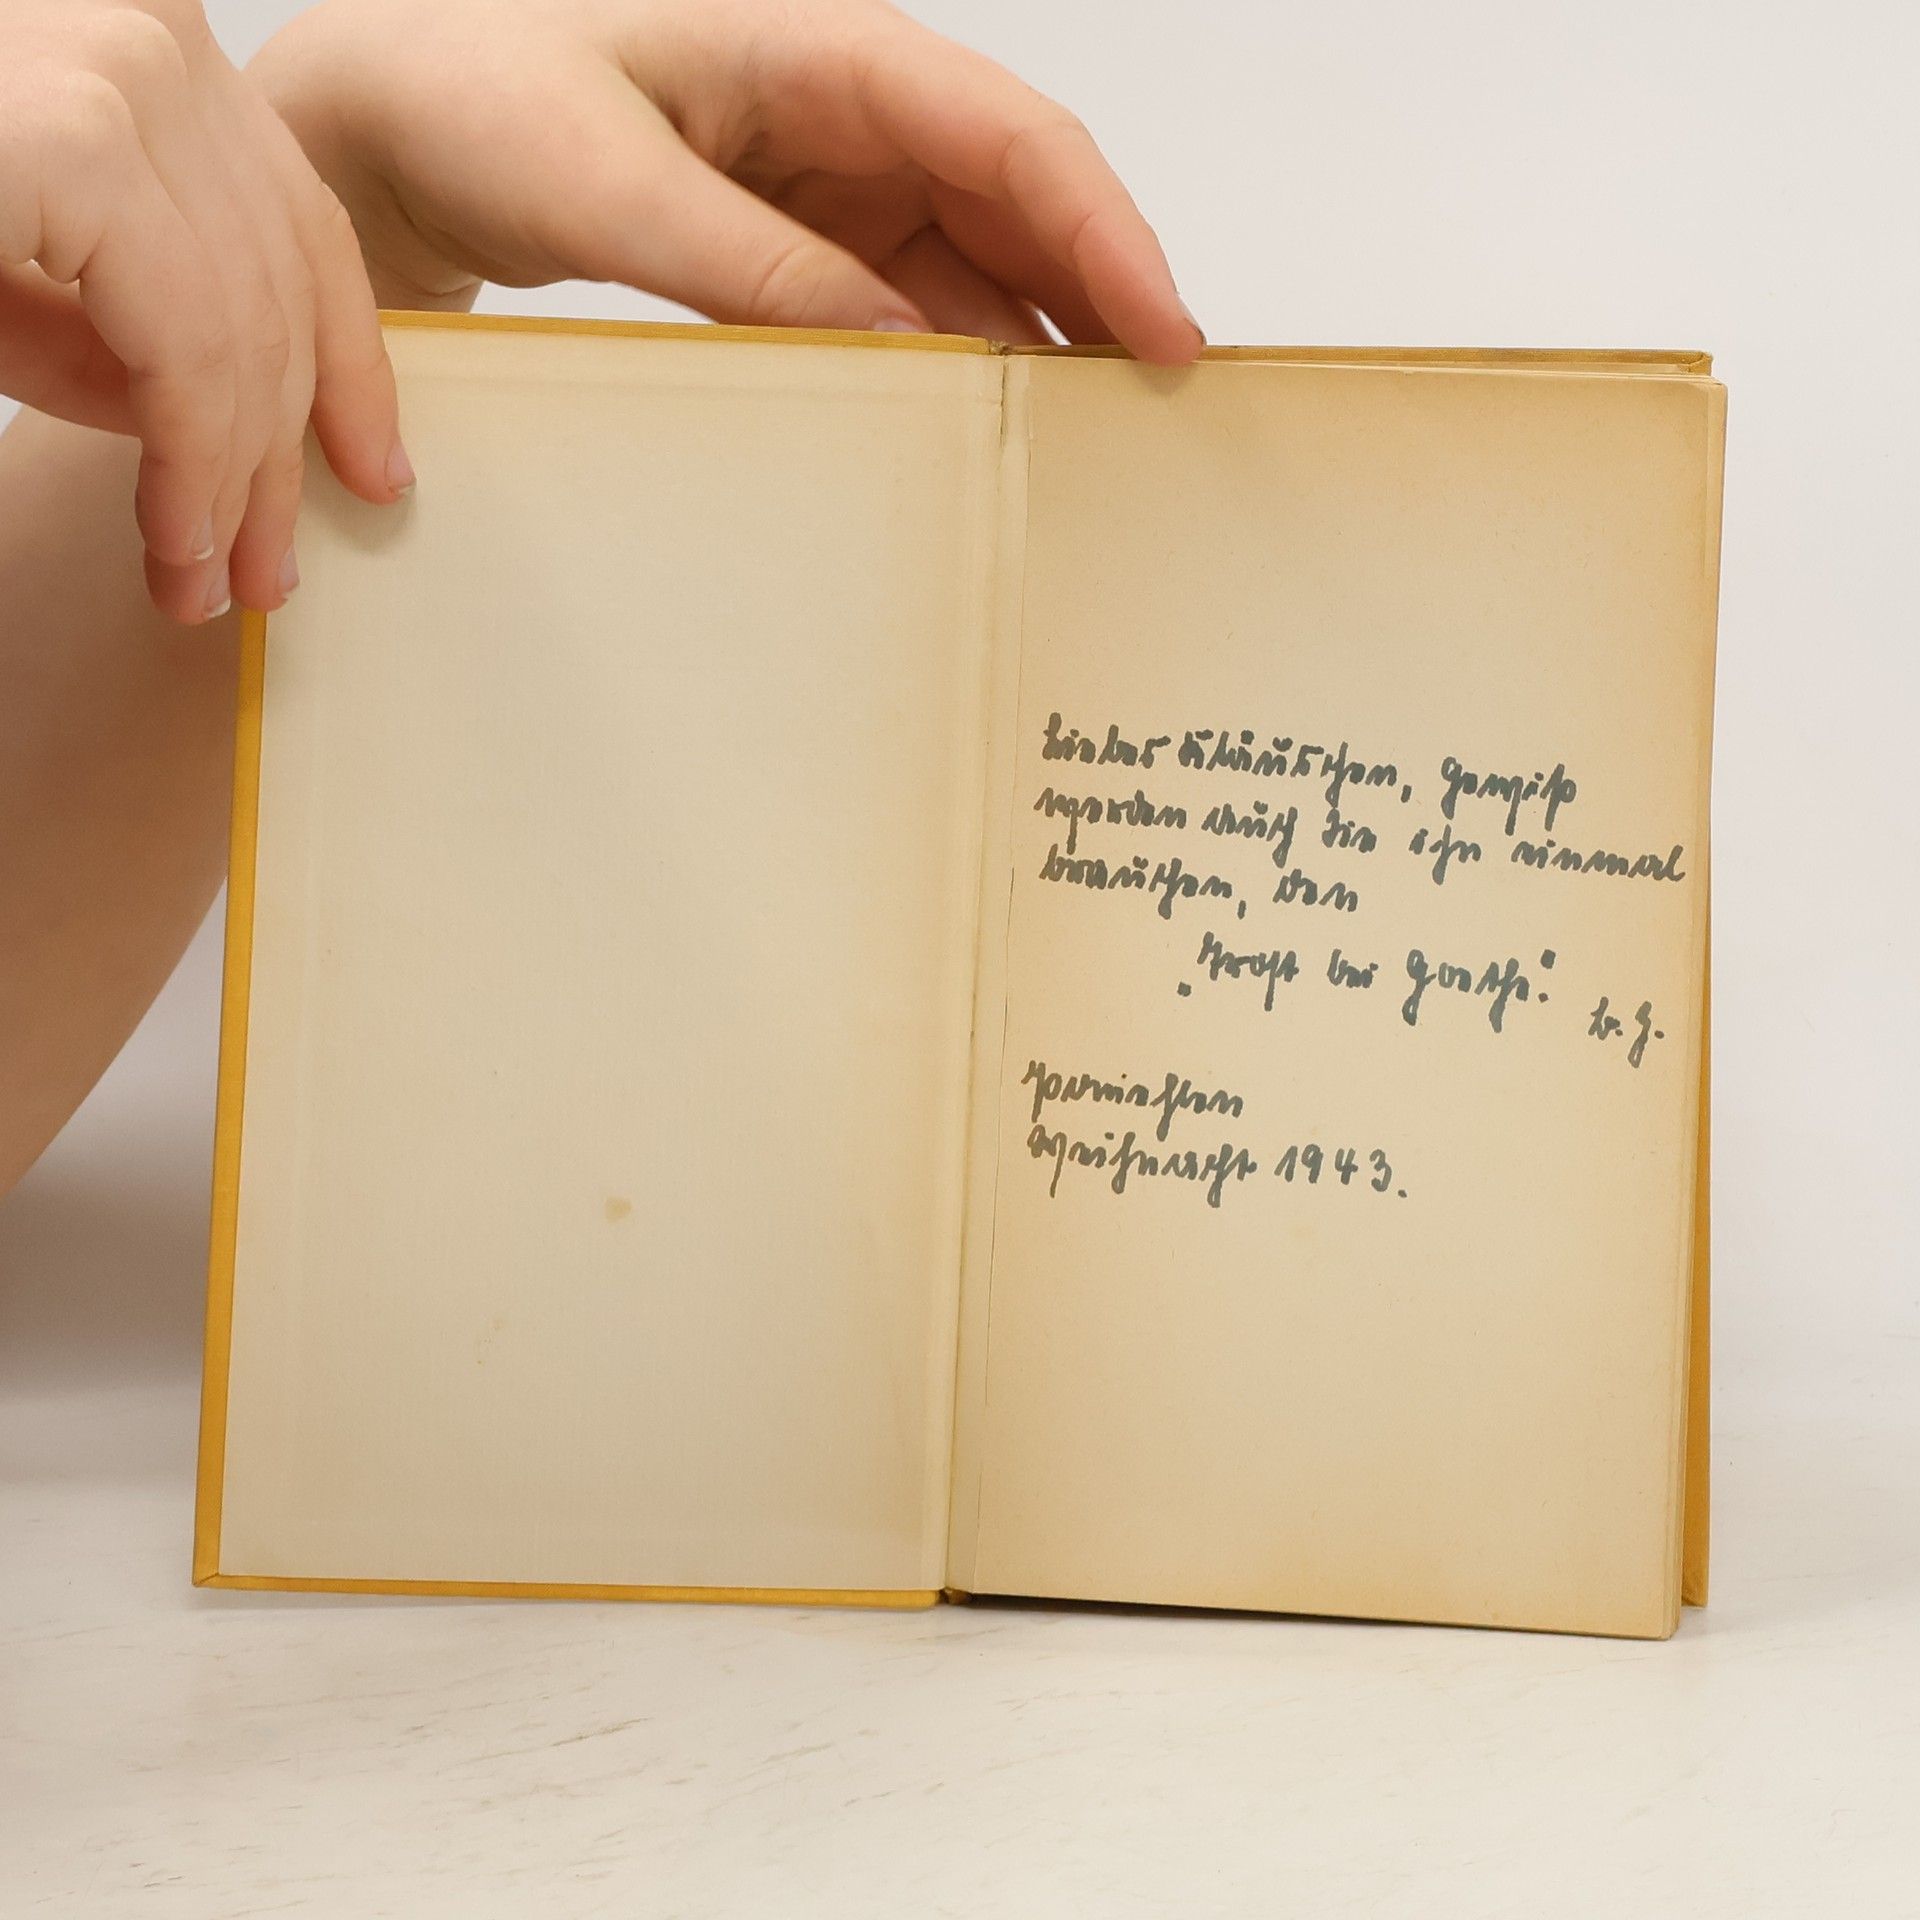 Liebes gewiß
werden auch Sie ihn einmal
brauchen, den
„Trost bei Goethe.“
Weihnacht 1943.